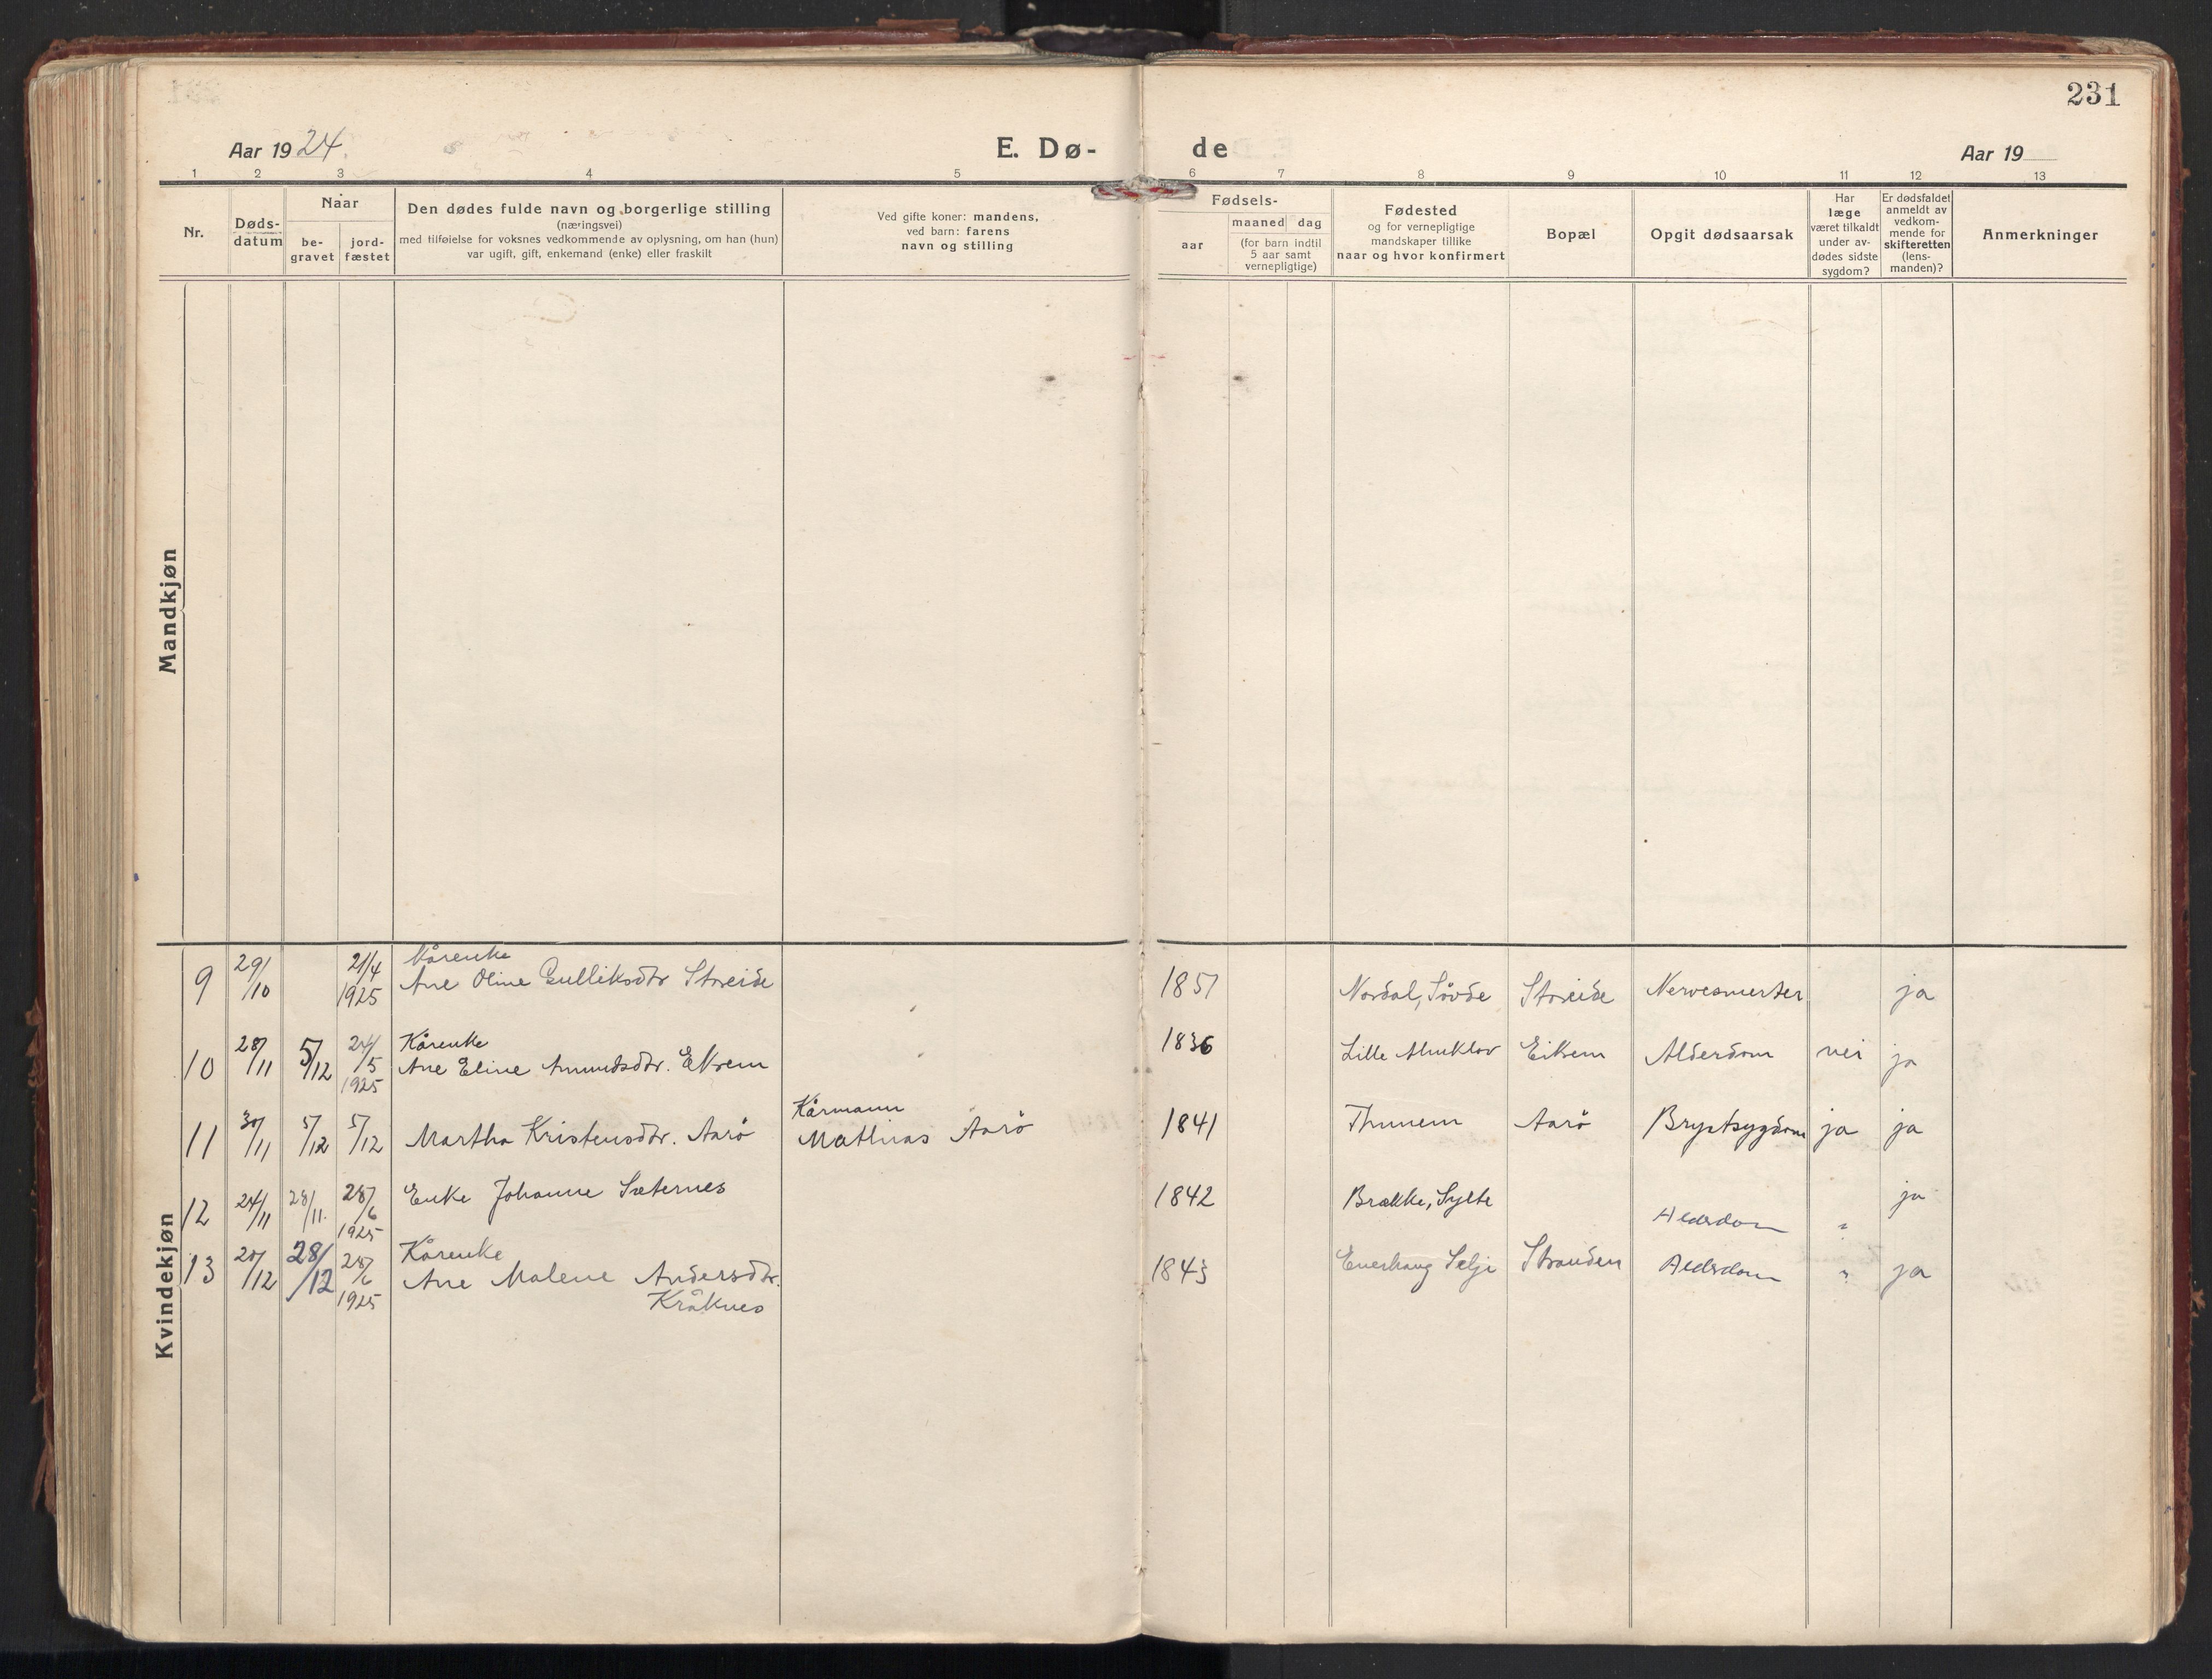 231
Aar 1924.
E. Dø-
de
Aar 19
1 2 3 4 5 6 7 8 9 10 11 12 13
Nr.
Døds-
datum
Naar
be-
gravet
jord-
fæstet
Den dødes fulde navn og borgerlige stilling
(næringsvei)
med tilføielse for voksnes vedkommende av oplysning, om han (hun)
var ugift, gift, enkemand (enke) eller fraskilt
Ved gifte koner: mandens,
ved barn: farens
navn og stilling
Fødsels-
aar
maaned dag
(for barn indtil
5 aar samt
vernepligtige)
Fødested
og for vernepligtige
mandskaper tillike
naar og hvor konfirmert
Bopæl
Opgit dødsaarsak
Har
læge
været tilkaldt
under av-
dødes sidste
sygdom?
Er dødsfaldet
anmeldt av
vedkom-
mende for
skifteretten
(lens-
manden)?
Anmerkninger
Mandkjøn
Kvindekjøn
Kårenke
9 29/10 21/4 1925 Ane Oline Gulliksdtr Storeide 1851 Nordal, Søvde Storeide Nervesmerter ja
Kårenke
10 28/11 5/12 24/5 1925 Ane Eline Amundsdtr. Ekrem 1836 Lille Eikrem Alderdom nei ja
Kårmann
11 30/11 5/12 5/12 Martha Kristensdtr. Aarö Mathias Aarö 1841 Aarö Brystsygdom ja ja
12 24/11 28/11. 28/6 1925 Enke Johanne Sæternes 1842 Brække, Sylte Aldrdom " ja
Kårenke
13 20/12 28/12 28/6 1925 Ane Malene Andersdtr. 1843 Selje Stranden Aldrdom " ja
Kråknes